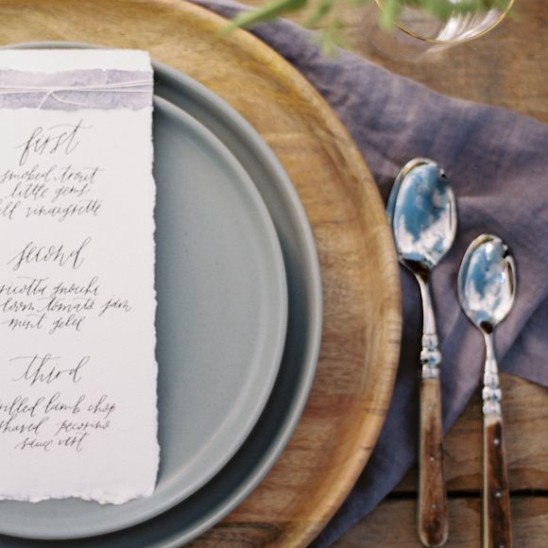 first
smoked trout
little gems
ll vinaigrette
second
icotta gnocchi
loom tomato jam
mint gelee
third
rilled lamb chop
shaved pecorino
sauce vert